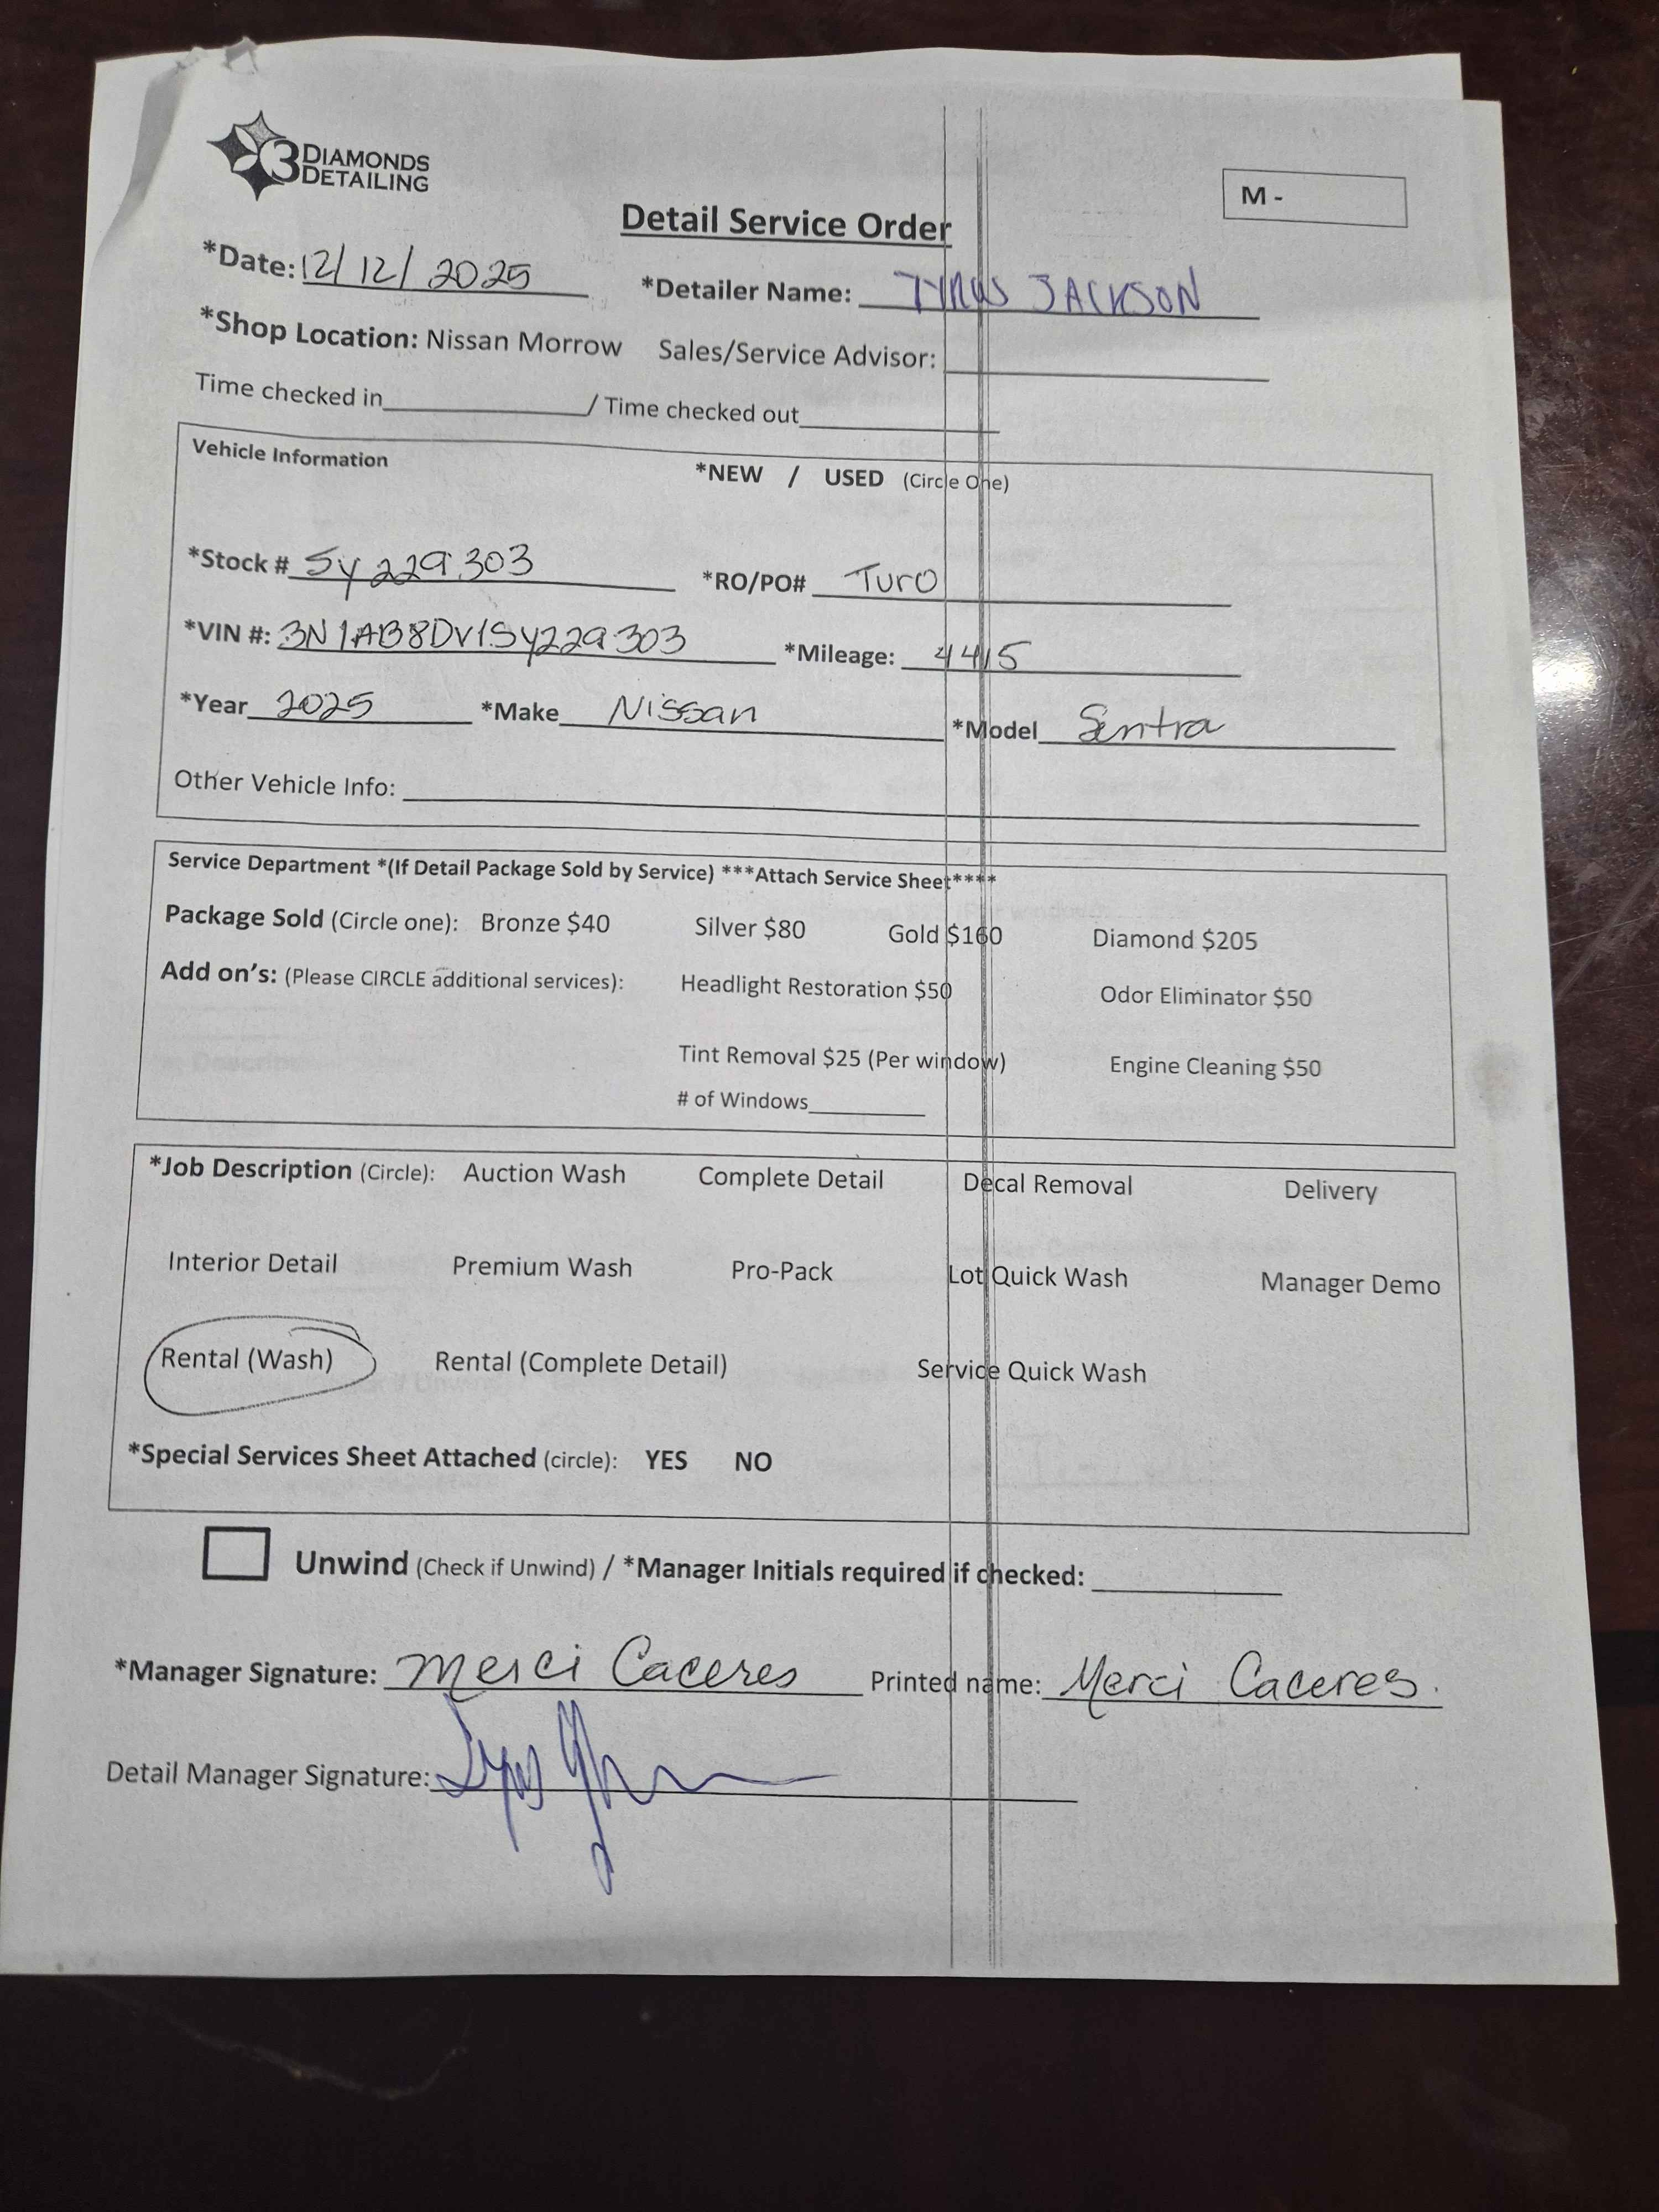 3 DIAMONDS
DETAILING
M -
Detail Service Order
*Date: 12/12/2025 *Detailer Name: TYRUS JACKSON
*Shop Location: Nissan Morrow Sales/Service Advisor:
Time checked in / Time checked out
Vehicle Information
*NEW / USED (Circle One)
*Stock # SY229303 *RO/PO# Turo
*VIN #: 3N1AB8DV1SY229303 *Mileage: 4415
*Year 2025 *Make Nissan *Model Sentra
Other Vehicle Info:
Service Department *(If Detail Package Sold by Service) ***Attach Service Sheet****
Package Sold (Circle one): Bronze $40 Silver $80 Gold $160 Diamond $205
Add on's: (Please CIRCLE additional services): Headlight Restoration $50 Odor Eliminator $50
Tint Removal $25 (Per window) Engine Cleaning $50
# of Windows
*Job Description (Circle): Auction Wash Complete Detail Decal Removal Delivery
Interior Detail Premium Wash Pro-Pack Lot Quick Wash Manager Demo
Rental (Wash) Rental (Complete Detail) Service Quick Wash
*Special Services Sheet Attached (circle): YES NO
Unwind (Check if Unwind) / *Manager Initials required if checked:
*Manager Signature: Merci Caceres Printed name: Merci Caceres.
Detail Manager Signature: